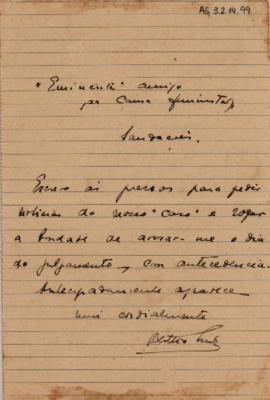 AG, 3.2.14.99
"Eminente" amigo
da Causa feminista,
Saudações.
Escrevo às pressas para pedir
noticias do nosso "caso" e rogar
a bondade de avisar-me o dia
do julgamento, com antecedencia.
Antecipadamente agradece
mui cordialmente